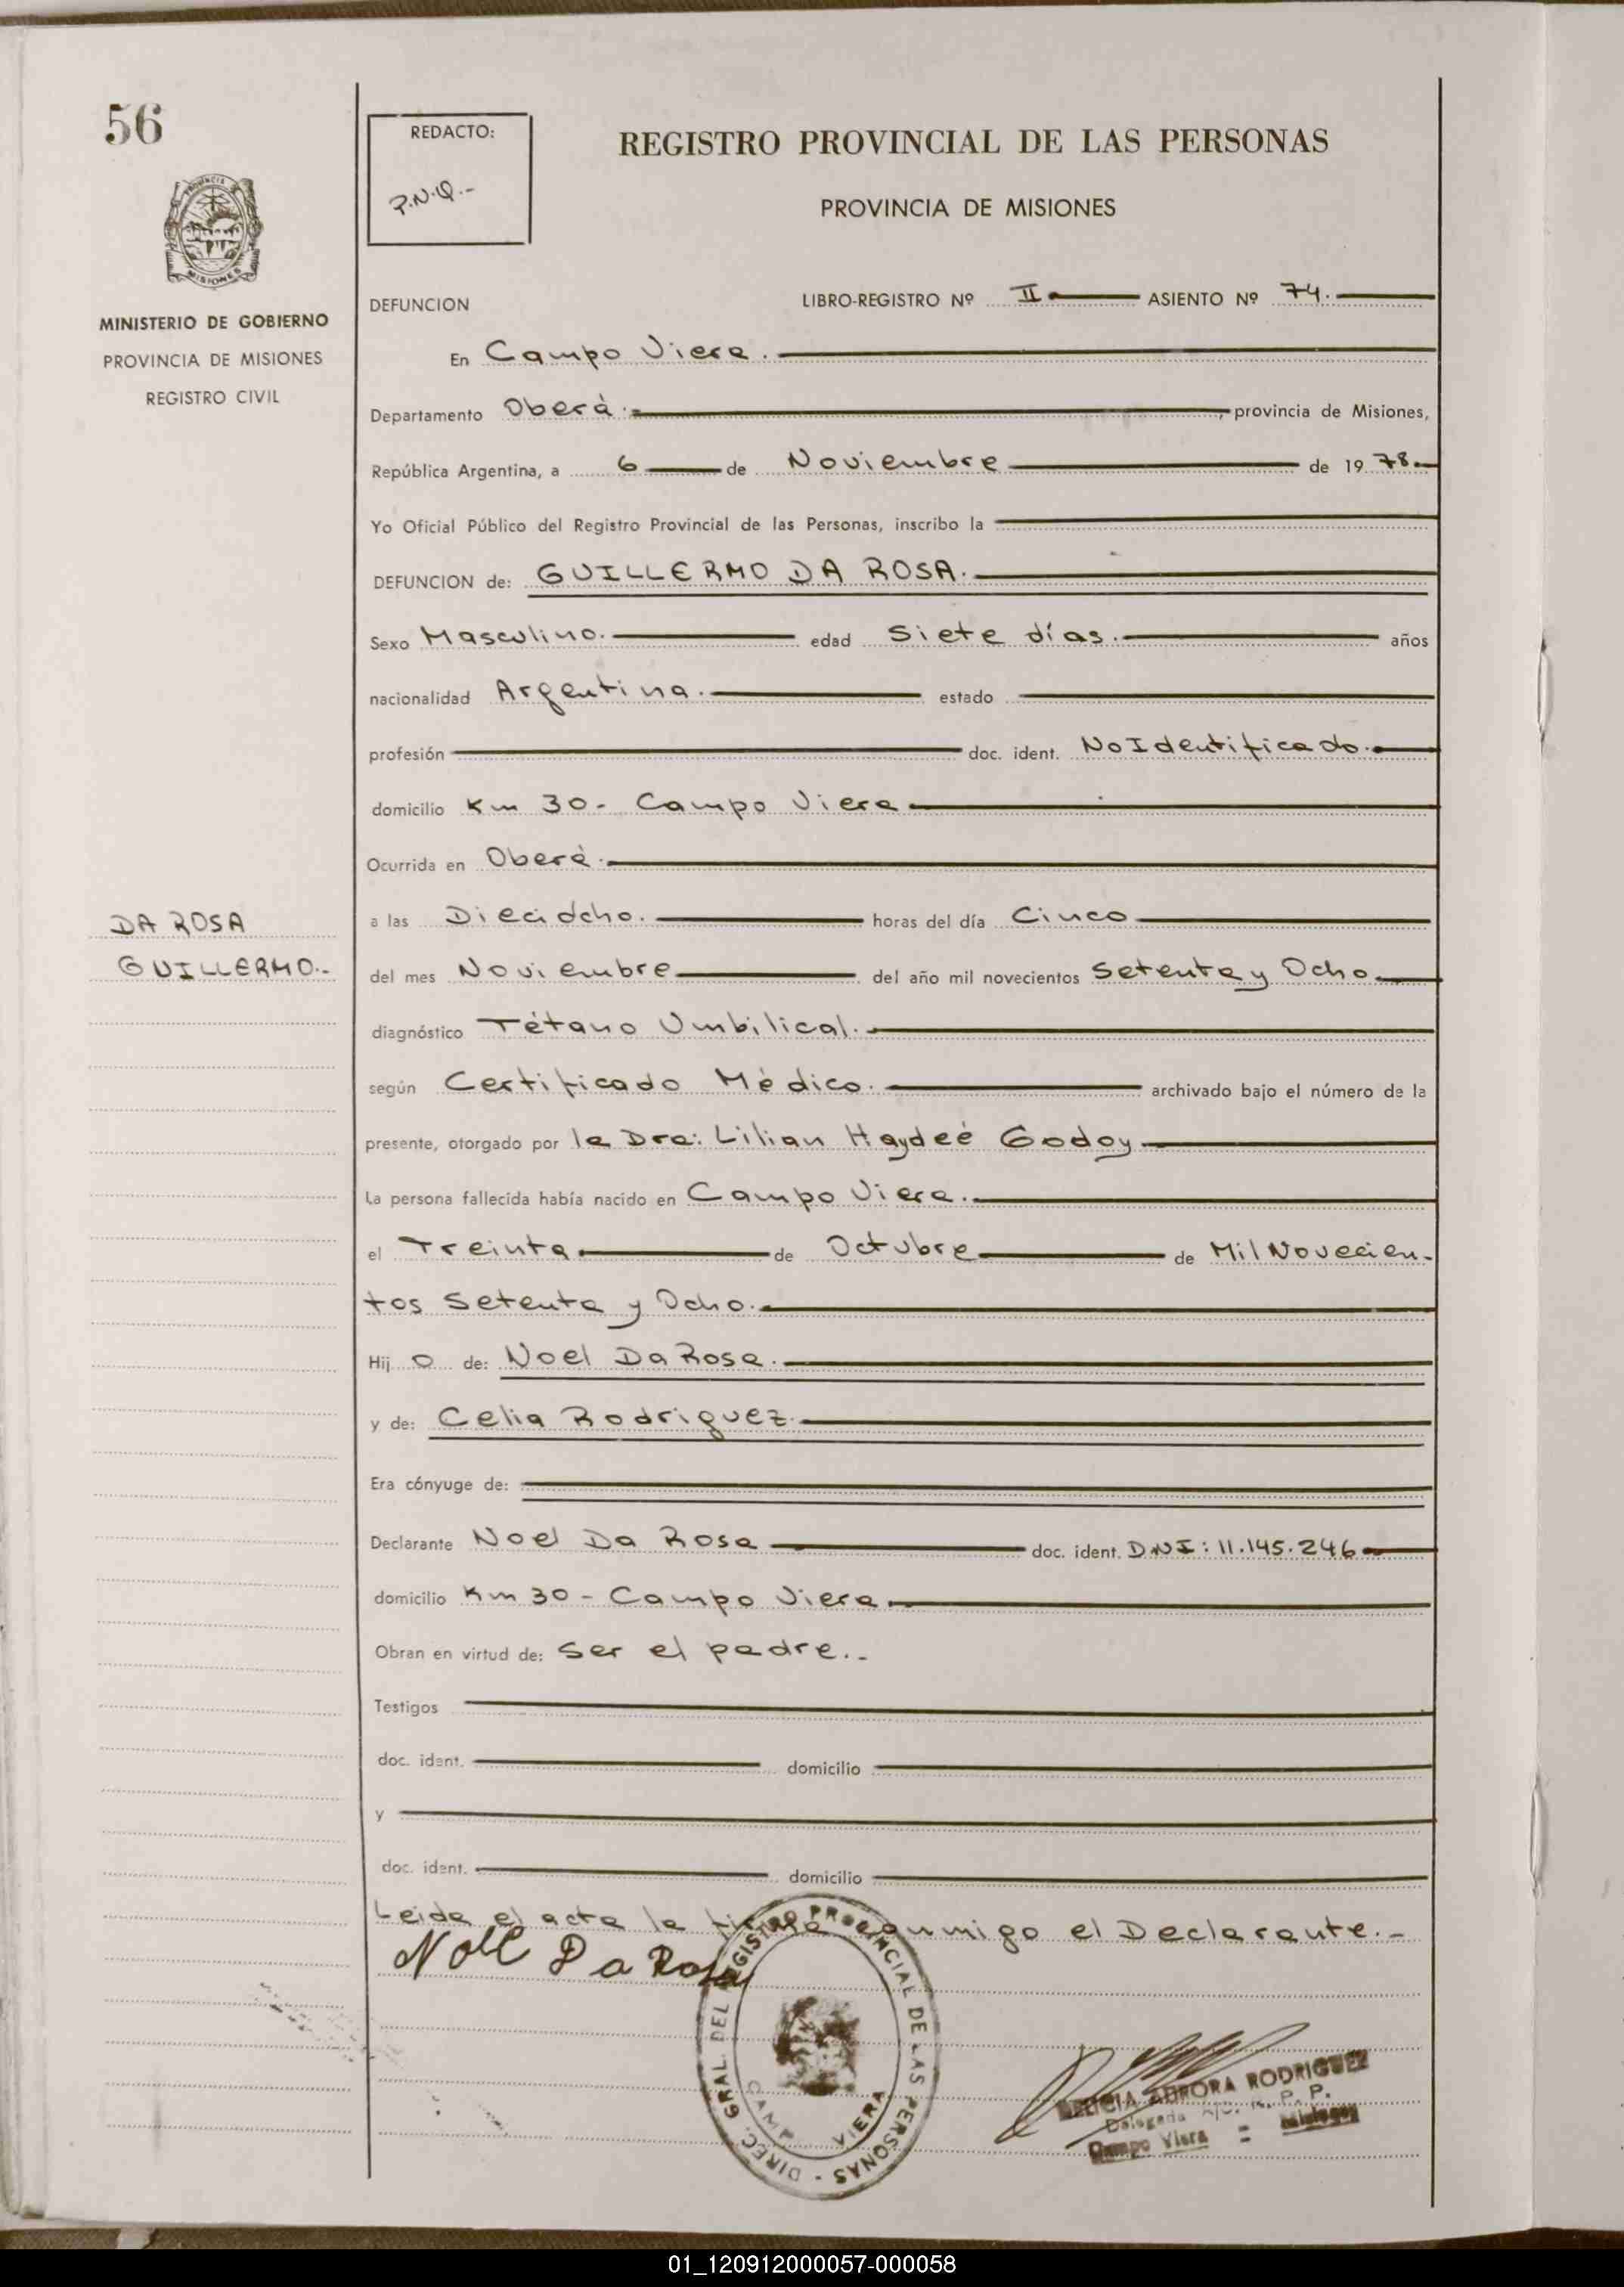 56
REDACTO:
P.N.Q.-
REGISTRO PROVINCIAL DE LAS PERSONAS
PROVINCIA DE MISIONES
PROVINCIA
MISIONES
MINISTERIO DE GOBIERNO
PROVINCIA DE MISIONES
REGISTRO CIVIL
DEFUNCION LIBRO-REGISTRO Nº II ASIENTO Nº 74.
En Campo Viera.
Departamento Oberá.-, provincia de Misiones,
República Argentina, a 6 de Noviembre de 1978.-
Yo Oficial Público del Registro Provincial de las Personas, inscribo la
DEFUNCION de: GUILLERMO DA ROSA.
Sexo Masculino. edad Siete días. años
nacionalidad Argentina. estado
profesión doc. ident. No Identificado.-
domicilio Km 30- Campo Viera
Ocurrida en Oberá.
DA ROSA
GUILLERMO.-
a las Dieciócho. horas del día Cinco
del mes Noviembre del año mil novecientos Setenta y Ocho
diagnóstico Tétano Umbilical.
según Certificado Médico. archivado bajo el número de la
presente, otorgado por la Dra: Lilian Haydeé Godoy
La persona fallecida había nacido en Campo Viera.
el Treinta de Octubre de Mil Novecien-
tos Setenta y Ocho.
Hij o de: Noel Da Rosa.
y de: Celia Rodriguez.
Era cónyuge de:
Declarante Noel Da Rosa doc. ident. DNI: 11.145.246
domicilio Km 30 - Campo Viera
Obran en virtud de: Ser el padre.-
Testigos
doc. ident. domicilio
y
doc. ident. domicilio
Leida el acta la firma conmigo el Declarante.-
Noel Da Rosa
DIREC. GRAL. DEL REGISTRO PROVINCIAL DE LAS PERSONAS -
CAMPO VIERA
AURORA RODRIGUEZ
Delegada R. P. P.
Campo Viera = Misiones
01_120912000057-000058